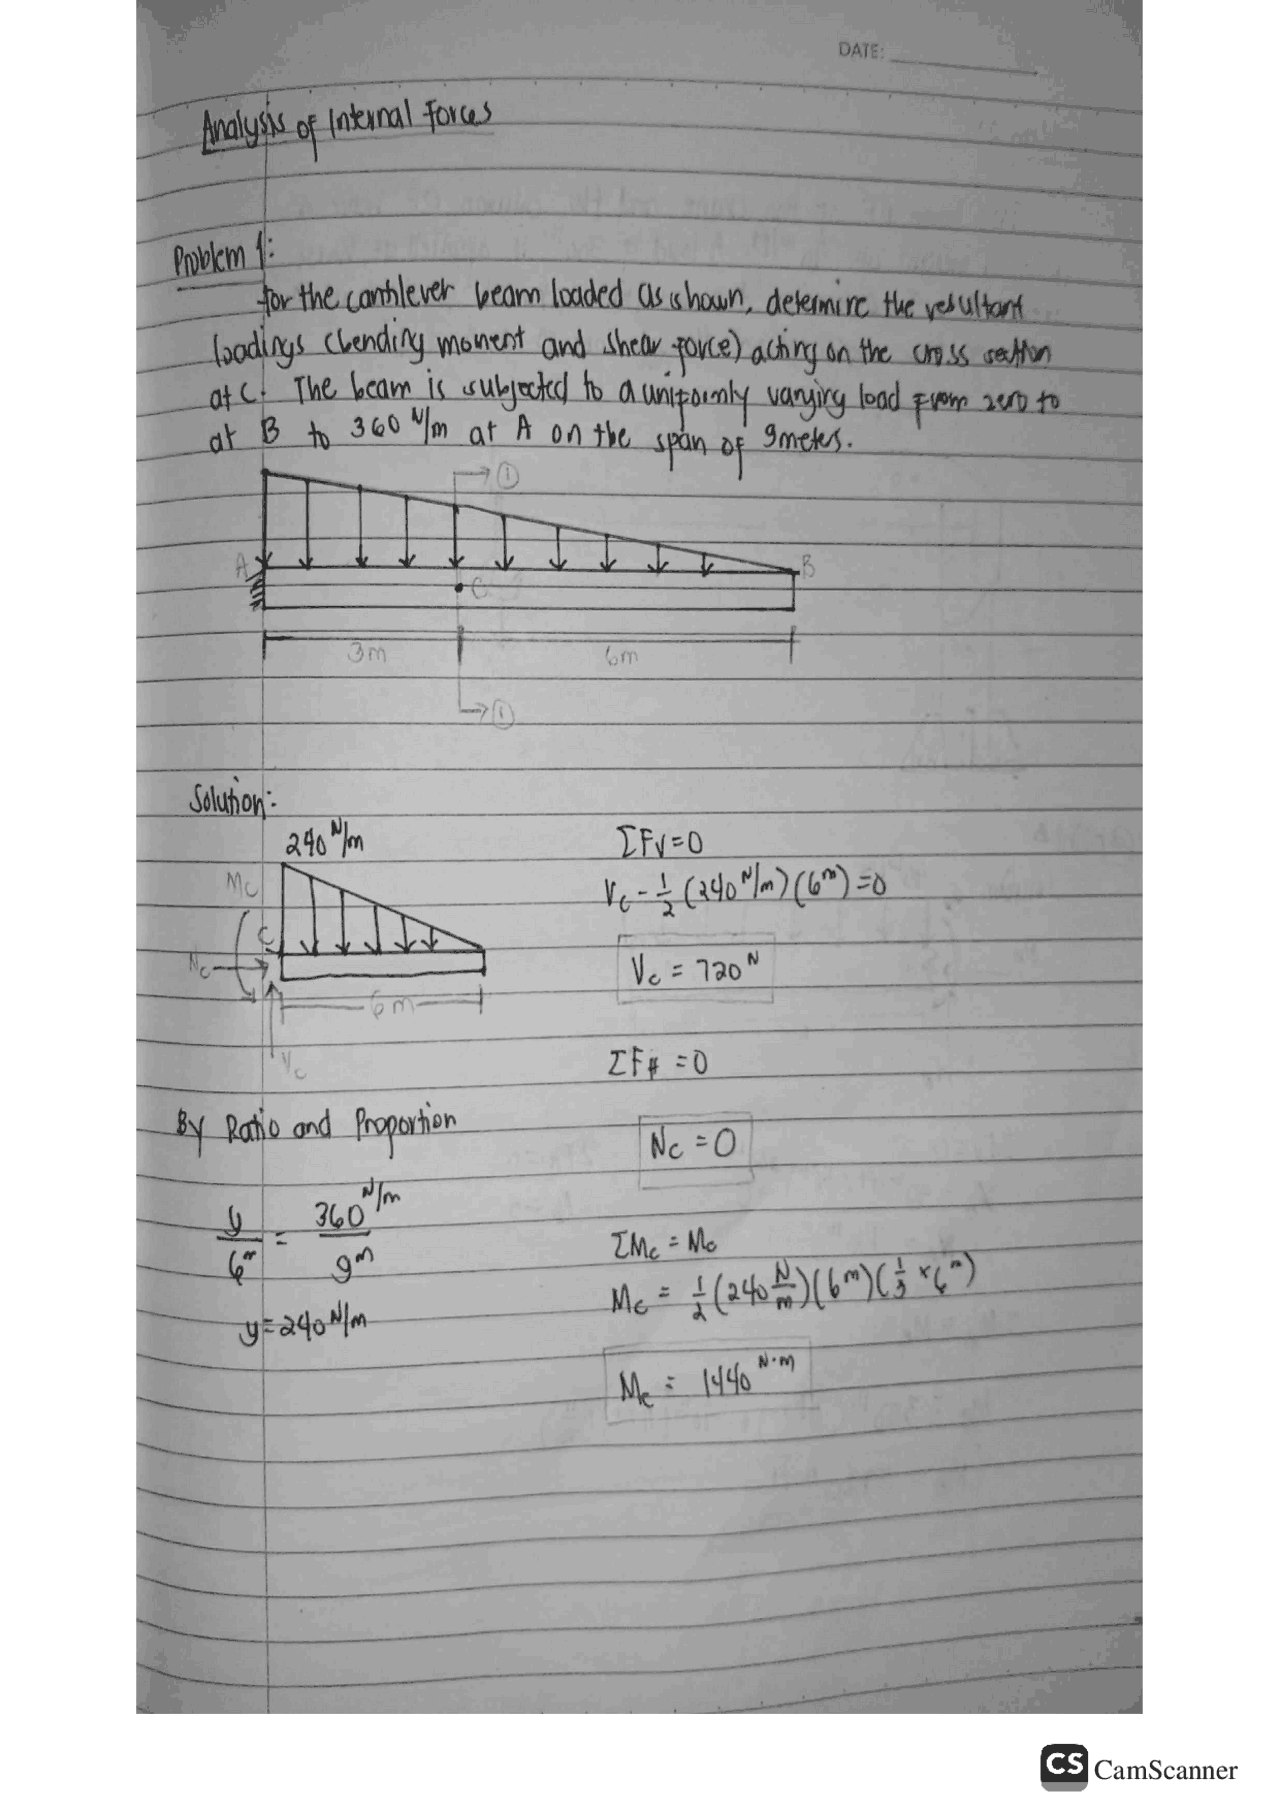 DATE:
Analysis of Internal Forces
Problem 1:
for the cantilever beam loaded as shown, determine the resultant
loadings (bending moment and shear force) acting on the cross section
at C. The beam is subjected to a uniformly varying load from zero to
at B to 360 N/m at A on the span of 9meters.
①
A
B
C
3m
6m
①
Solution:
240 N/m
Mc
C
Nc
6m
Vc
ΣFV=0
Vc - 1/2 (240 N/m)(6m)=0
Vc = 720 N
ΣFH =0
Nc = 0
By Ratio and Proportion
y/6m = 360 N/m / 9m
y=240 N/m
ΣMc = Mc
Mc = 1/2 (240 N/m)(6m)(1/3 × 6m)
Mc = 1440 N·m
CS CamScanner